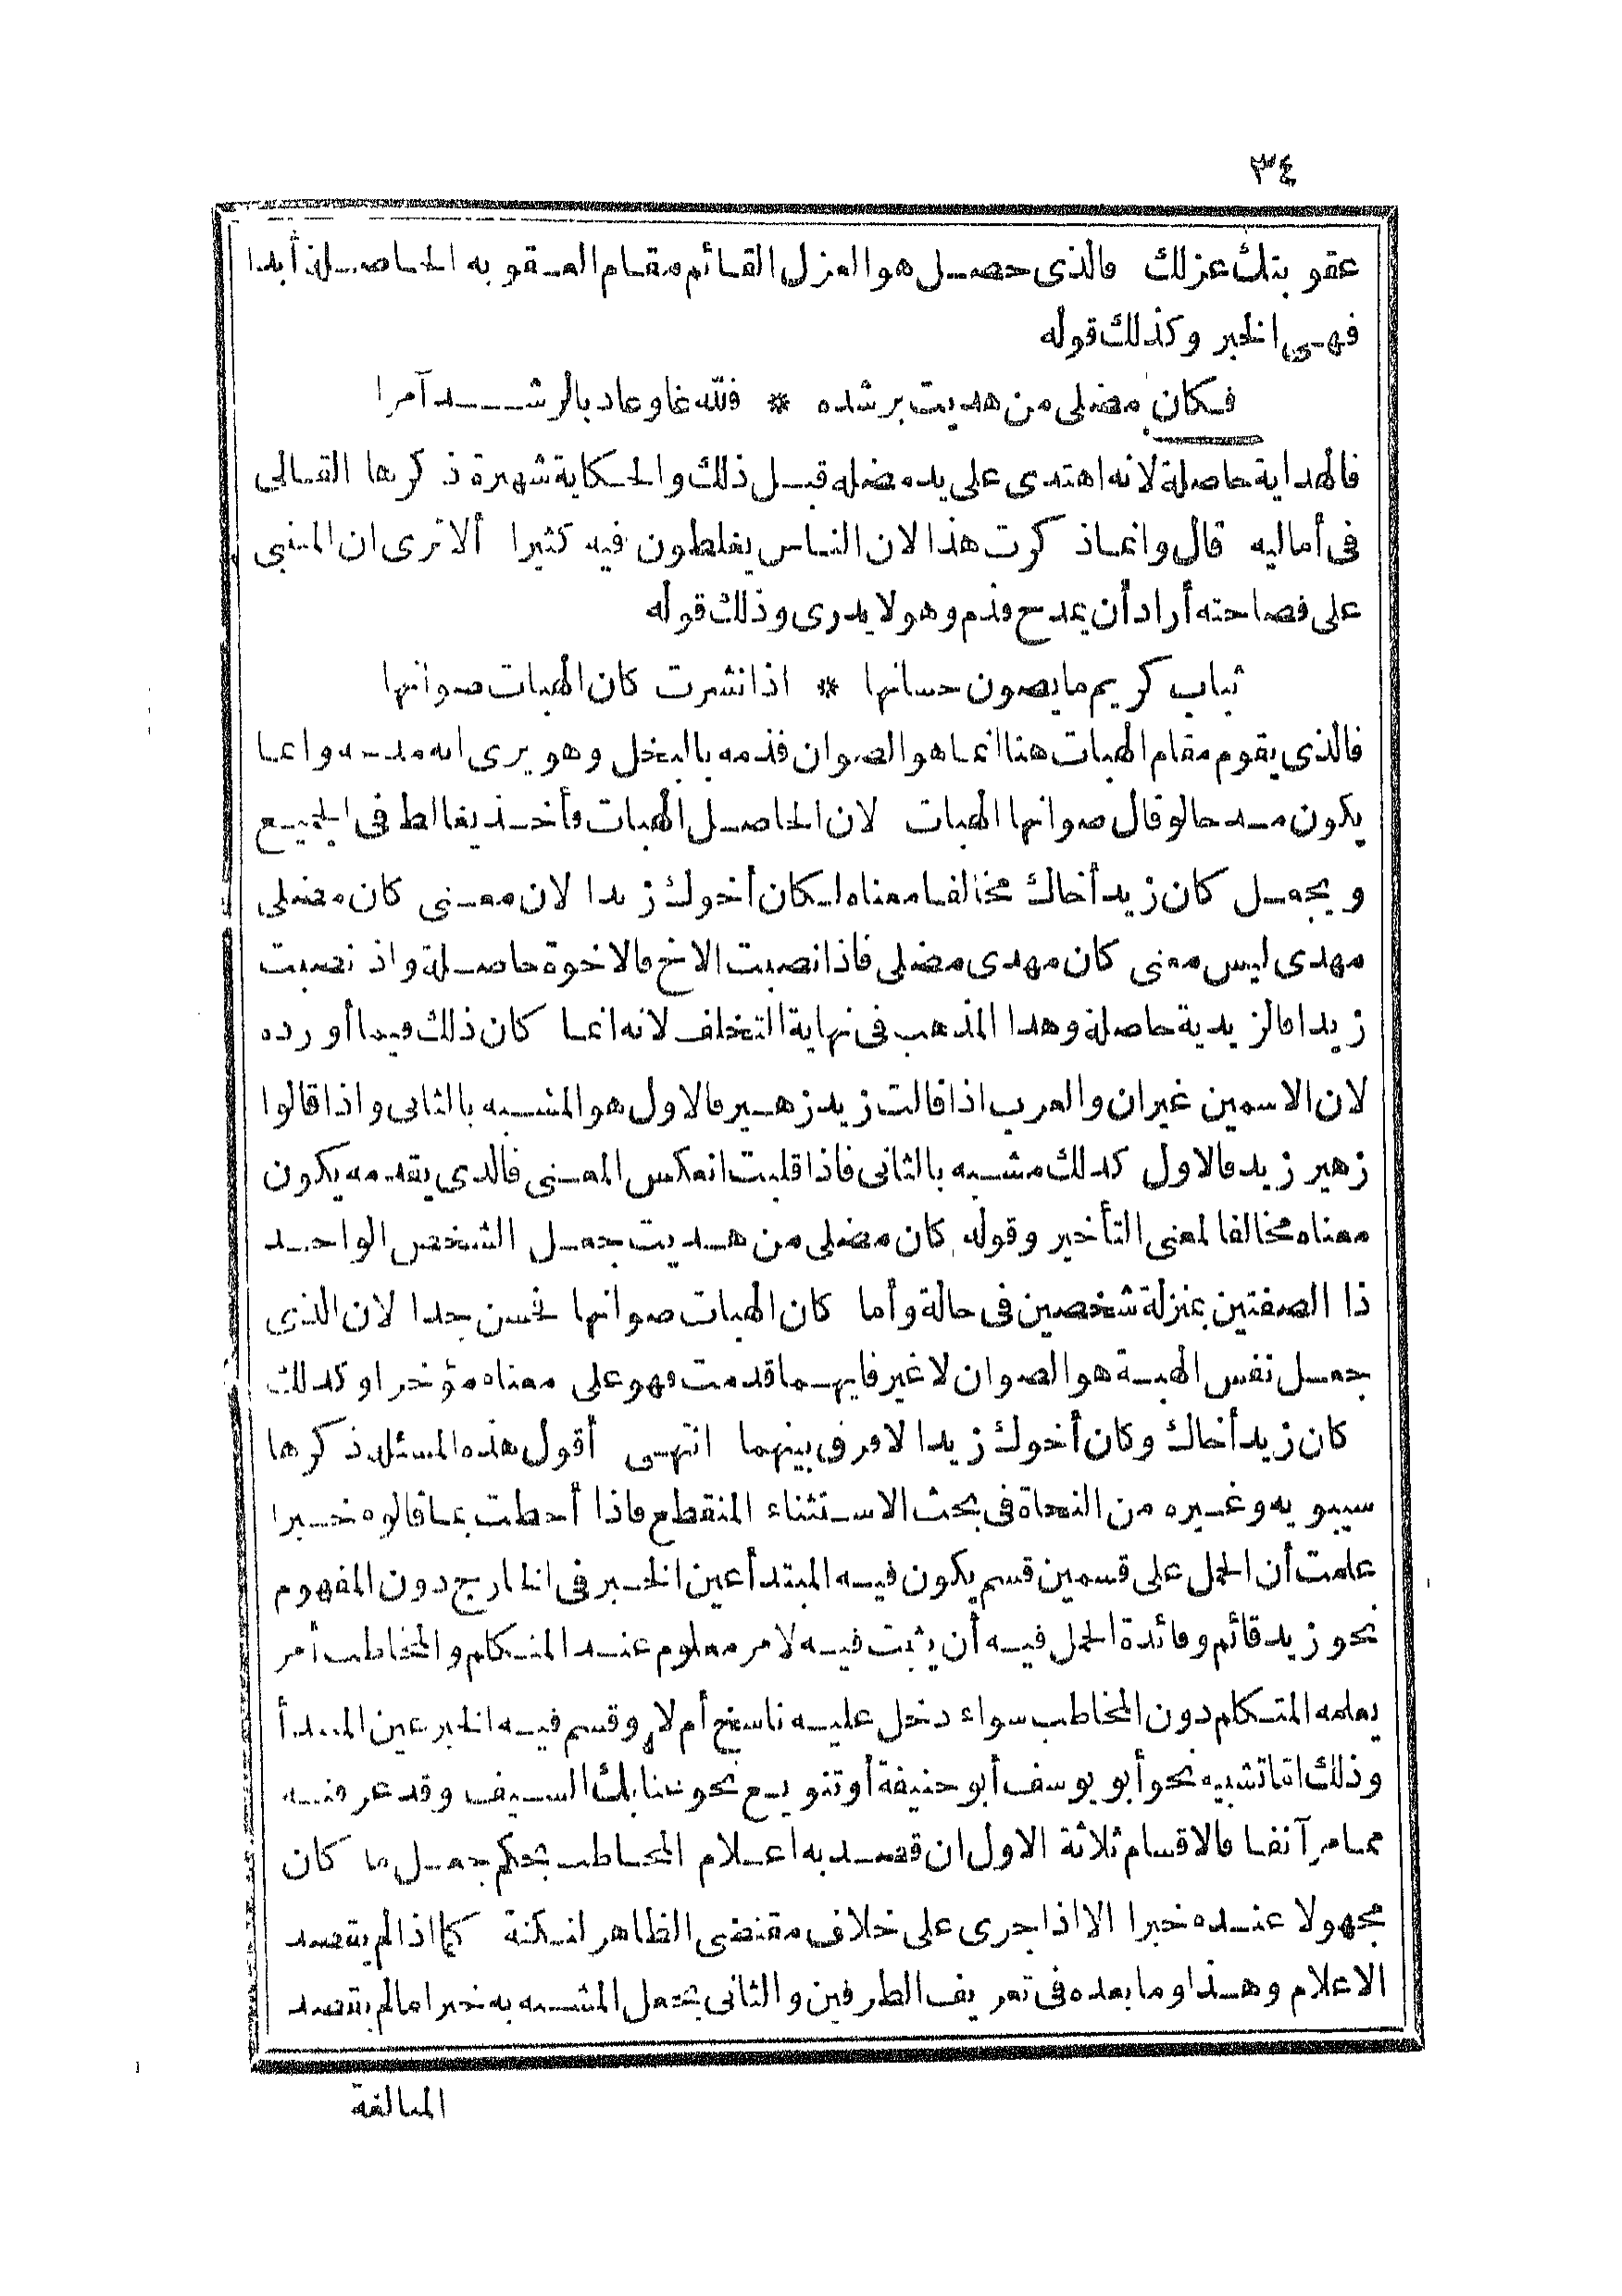 ٣٤
عقوبتك عزلك فالذى حصل هو العزل القائم مقام العقوبه الحاصلة أبدا
فهى الخبر وكذلك قوله
فكان مضلى من هديت برشده * فلله غاو عاد بالرشد آمرا
فالهداية حاصلة لانه اهتدى على يد مضله قبل ذلك والحكاية شهيرة ذكرها القالى
فى أماليه قال وانما ذكرت هذا لان الناس يغلطون فيه كثيرا ألا ترى ان المتنبى
على فصاحته أراد أن يمدح فذم وهو لا يدرى وذلك قوله
ثياب كريم ما يصون حسانها * اذا نشرت كان الهبات صوانها
فالذى يقوم مقام الهبات هنا انما هو الصوان فذمه بالبخل وهو يرى انه مدحه وانما
يكون مدحا لو قال صوانها الهبات لان الحاصل الهبات فأخذ يغالط فى الجميع
ويجعل كان زيد أخاك مخالفا معناه لكان أخوك زيدا لان معنى كان مضلى
مهدى ليس معنى كان مهدى مضلى فاذا نصبت الاخ فالاخوة حاصلة واذ نصبت
زيدا فالزيدية حاصلة وهدا المذهب فى نهاية التخلف لانه انما كان ذلك فيما أورده
لان الاسمين غيران والعرب اذا قالت زيد زهير فالاول هو المشبه بالثانى واذا قالوا
زهير زيد فالاول كدلك مشبه بالثانى فاذا قلبت انعكس المعنى فالدى يقدمه يكون
معناه مخالفا لمعنى التأخير وقوله كان مضلى من هديت جعل الشخص الواحد
ذا الصفتين بمنزلة شخصين فى حالة وأما كان الهبات صوانها فحسن جدا لان الذى
جعل نفس الهبة هو الصوان لا غير فايهما قدمت فهو على معناه مؤخرا وكدلك
كان زيد أخاك وكان أخوك زيدا لا فرق بينهما انتهى أقول هذه المسئلة ذكرها
سيبويه وغيره من النحاة فى بحث الاستثناء المنقطع فاذا أحطت بما قالوه خبرا
علمت أن الحمل على قسمين قسم يكون فيه المبتدأ عين الخبر فى الخارج دون المفهوم
نحو زيد قائم وفائدة الحمل فيه أن يثبت فيه لامر معلوم عند المتكلم والمخاطب أمر
يعلمه المتكلم دون المخاطب سواء دخل عليه ناسخ أم لا وقسم فيه الخبر عين المبتدأ
وذلك امّا تشبيه نحو أبو يوسف أبو حنيفة أو تنويع نحو عتابك السيف وقد عرفته
مما مر آنفا فالاقسام ثلاثة الاول ان قصد به اعلام المخاطب بحكم جعل ما كان
مجهولا عنده خبرا الا اذا جرى على خلاف مقتضى الظاهر لنكتة كما اذا لم يقصد
الاعلام وهذا وما بعده فى تعريف الطرفين والثانى يجعل المشبه به خبرا ما لم يقصد
المبالغة